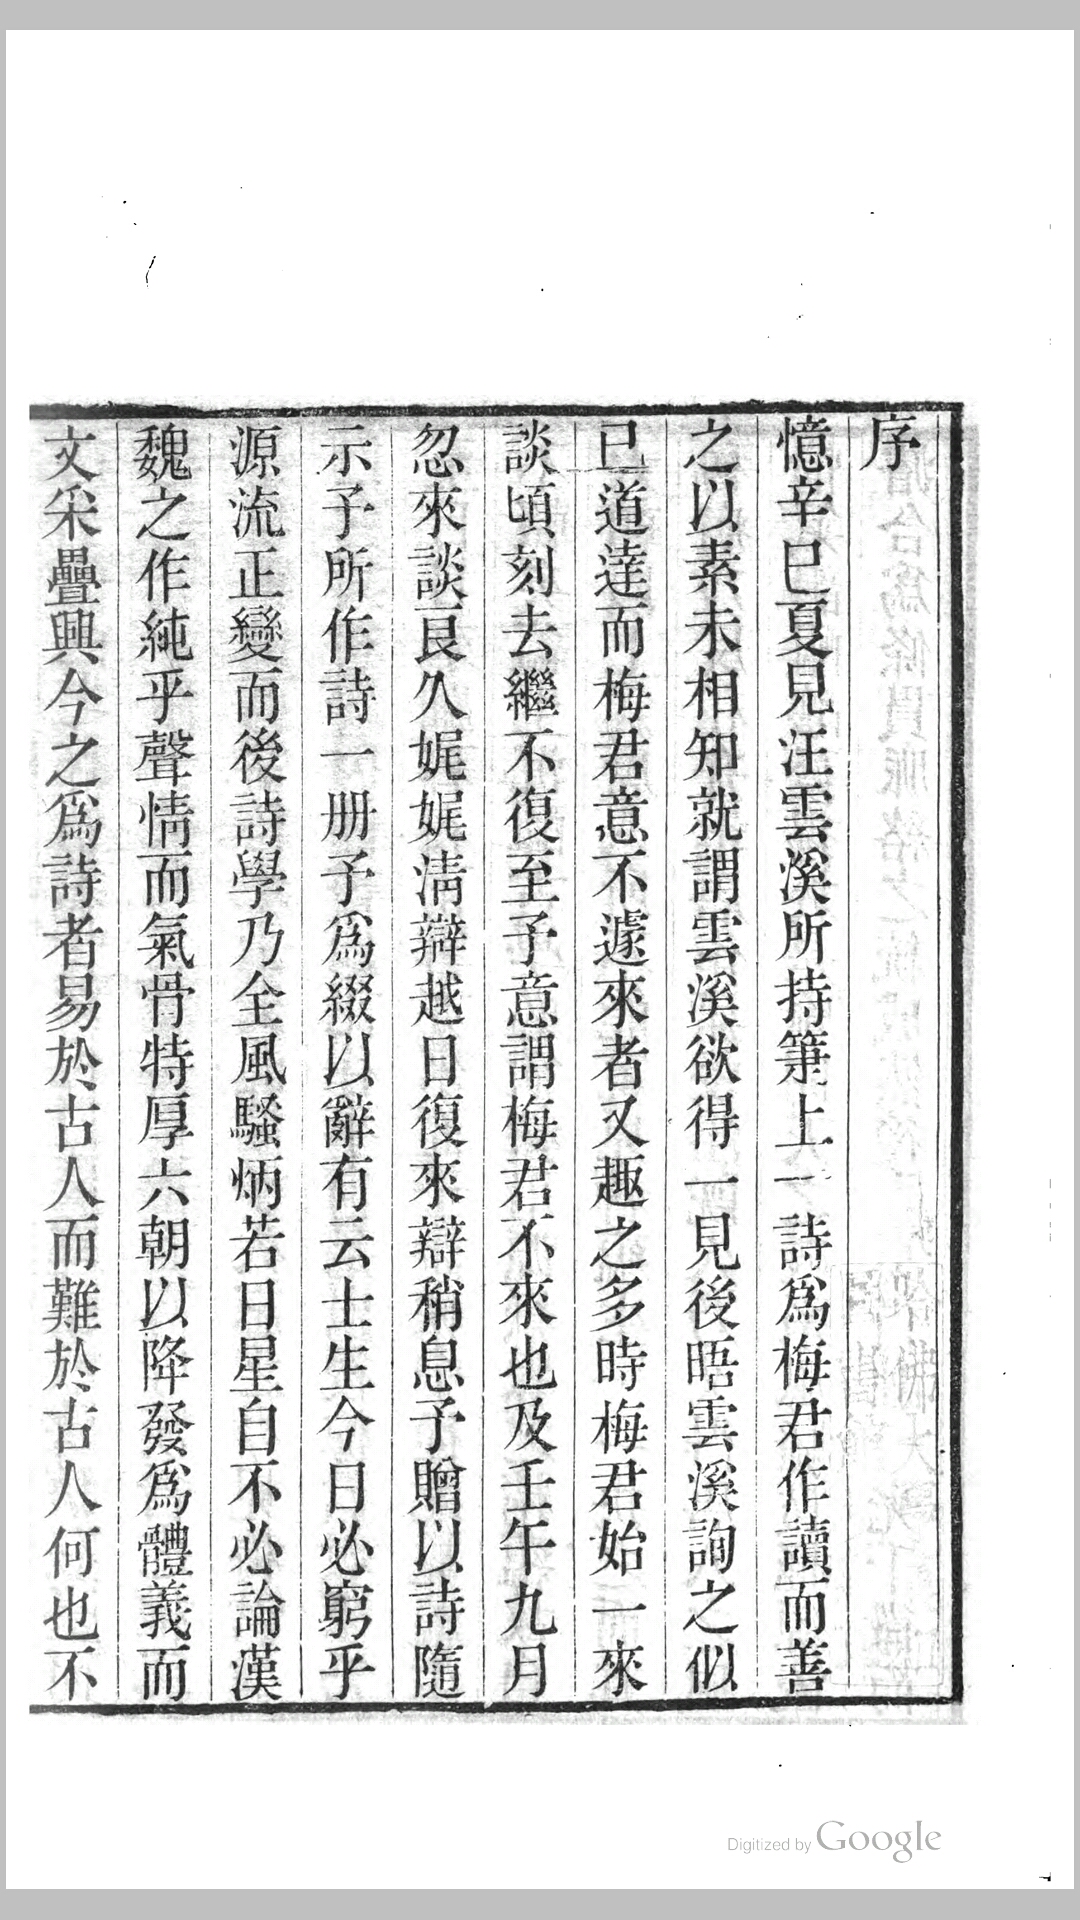 序
憶辛巳夏見汪雲溪所持箑上一詩爲梅君作讀而善
之以素未相知就謂雲溪欲得一見後晤雲溪詢之似
已道達而梅君意不遽來者又趣之多時梅君始一來
談頃刻去繼不復至予意謂梅君不來也及壬午九月
忽來談良久娓娓淸辯越日復來辯稍息予贈以詩隨
示予所作詩一册予爲綴以辭有云士生今日必窮乎
源流正變而後詩學乃全風騷炳若日星自不必論漢
魏之作純乎聲情而氣骨特厚六朝以降發爲體義而
文采疊興今之爲詩者易於古人而難於古人何也不
Digitized by Google